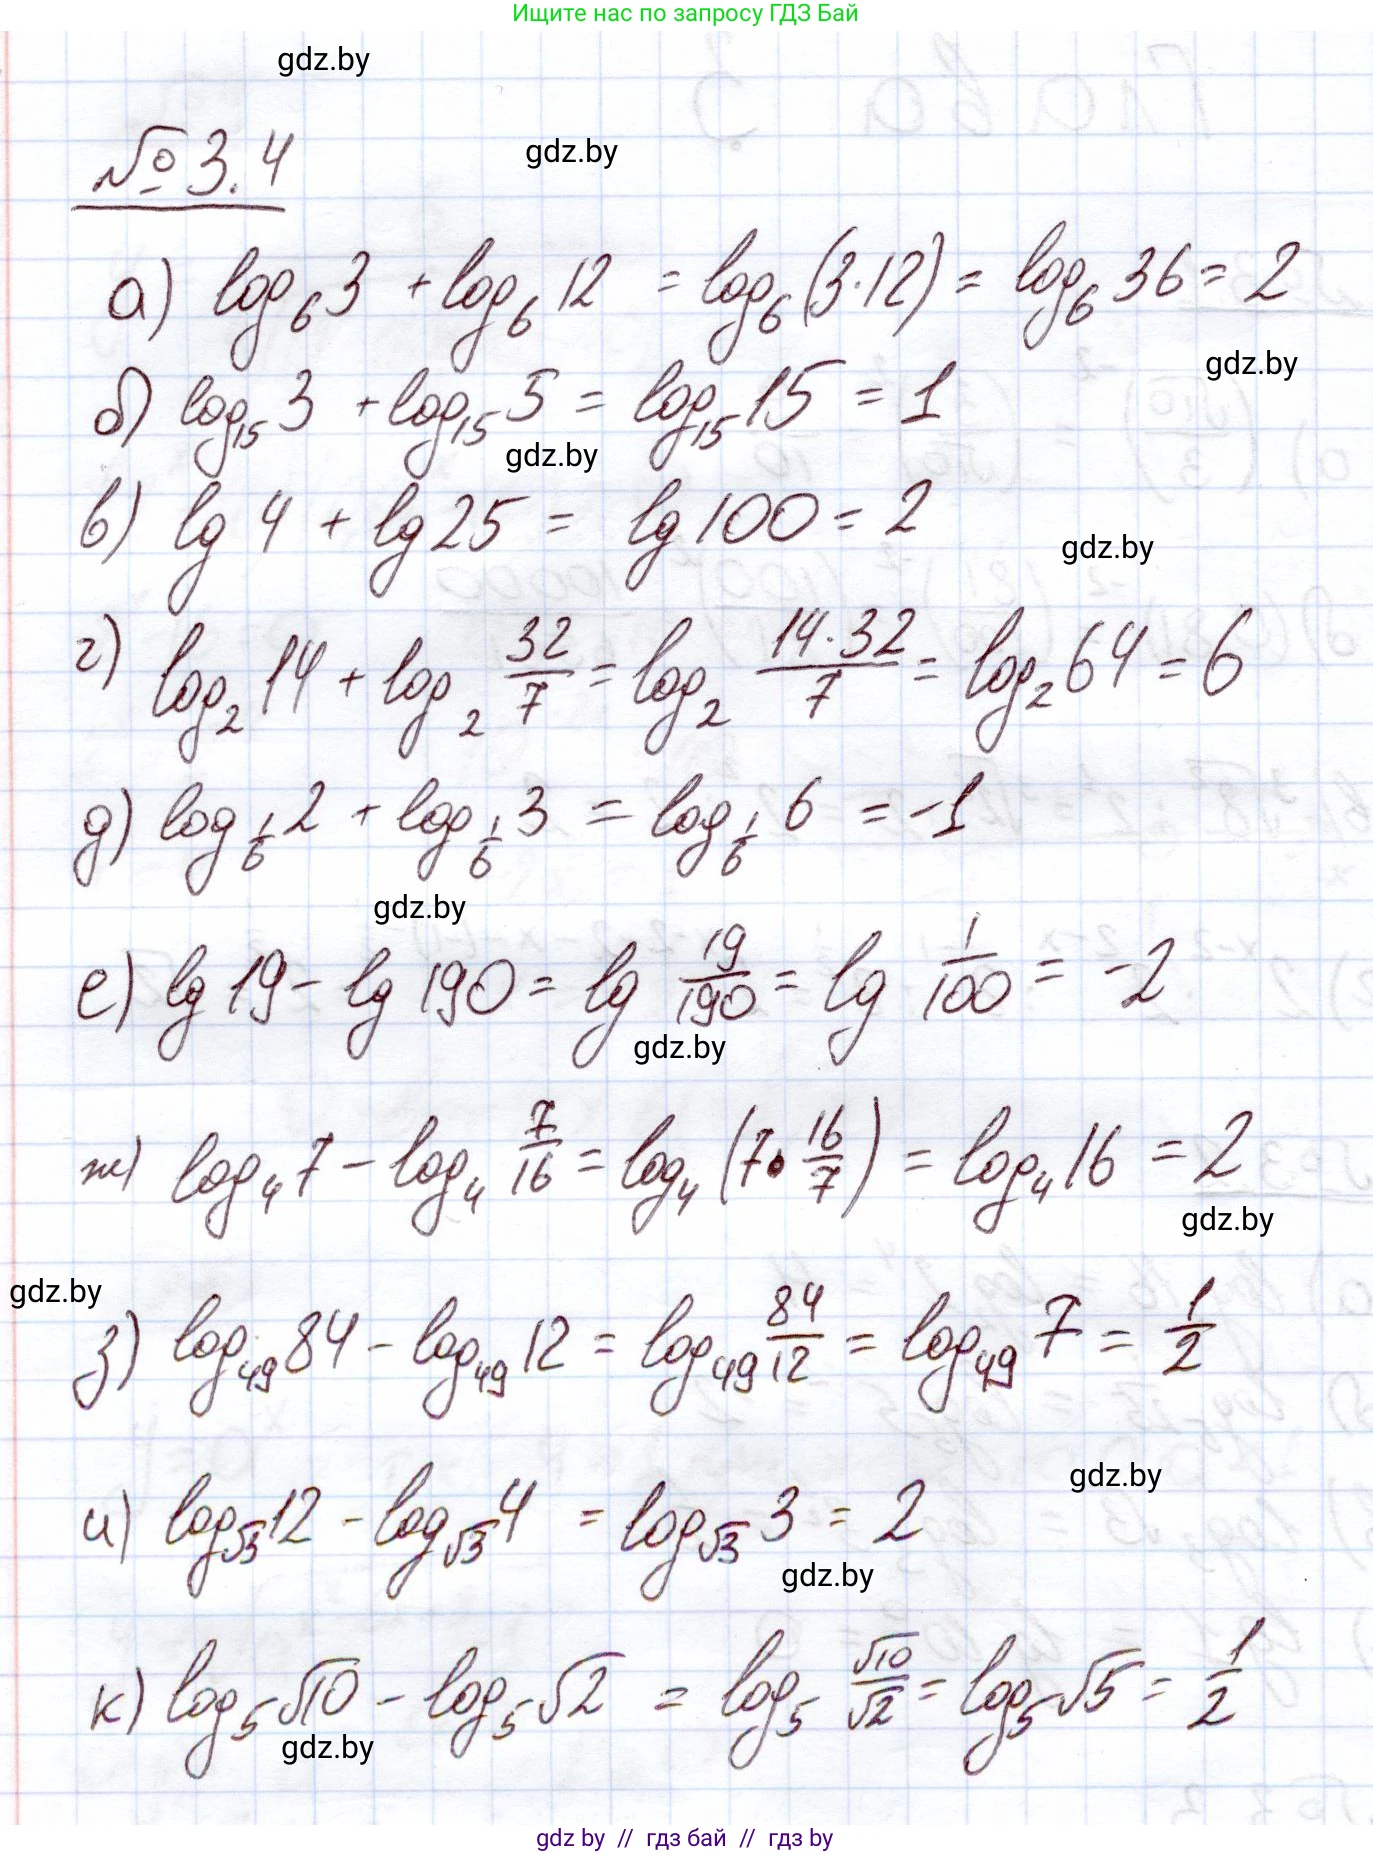 Ищите нас по запросу ГДЗ Бай
gdz.by
№ 3.4
gdz.by
а) log₆ 3 + log₆ 12 = log₆ (3·12) = log₆ 36 = 2
gdz.by
б) log₁₅ 3 + log₁₅ 5 = log₁₅ 15 = 1
gdz.by
в) lg 4 + lg 25 = lg 100 = 2
gdz.by
г) log₂ 14 + log₂ 32/7 = log₂ 14·32/7 = log₂ 64 = 6
д) log_(1/6) 2 + log_(1/6) 3 = log_(1/6) 6 = -1
gdz.by
е) lg 19 - lg 190 = lg 19/190 = lg 1/100 = -2
gdz.by
ж) log₄ 7 - log₄ 7/16 = log₄ (7 · 16/7) = log₄ 16 = 2
gdz.by
gdz.by
з) log₄₉ 84 - log₄₉ 12 = log₄₉ 84/12 = log₄₉ 7 = 1/2
gdz.by
и) log_√3 12 - log_√3 4 = log_√3 3 = 2
gdz.by
к) log₅ √10 - log₅ √2 = log₅ √10/√2 = log₅ √5 = 1/2
gdz.by
gdz by // гдз бай // гдz by